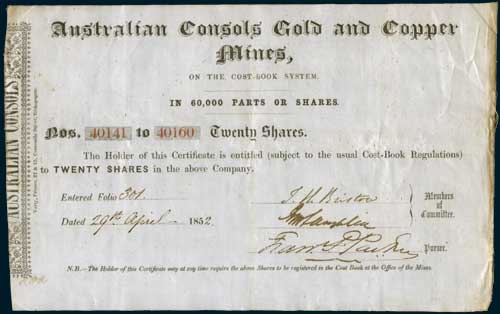 Australian Consols Gold and Copper
Mines,
ON THE COST-BOOK SYSTEM.
IN 60,000 PARTS OR SHARES.
Nos. 40141 to 40160 Twenty Shares.
The Holder of this Certificate is entitled (subject to the usual Cost-Book Regulations)
to TWENTY SHARES in the above Company.
Entered Folio 301
Dated 29th April 1852
Members
of
Committee.
Purser.
N.B.—The Holder of this Certificate may at any time require the above Shares to be registered in the Cost Book at the Office of the Mines.
AUSTRALIAN CONSOLS